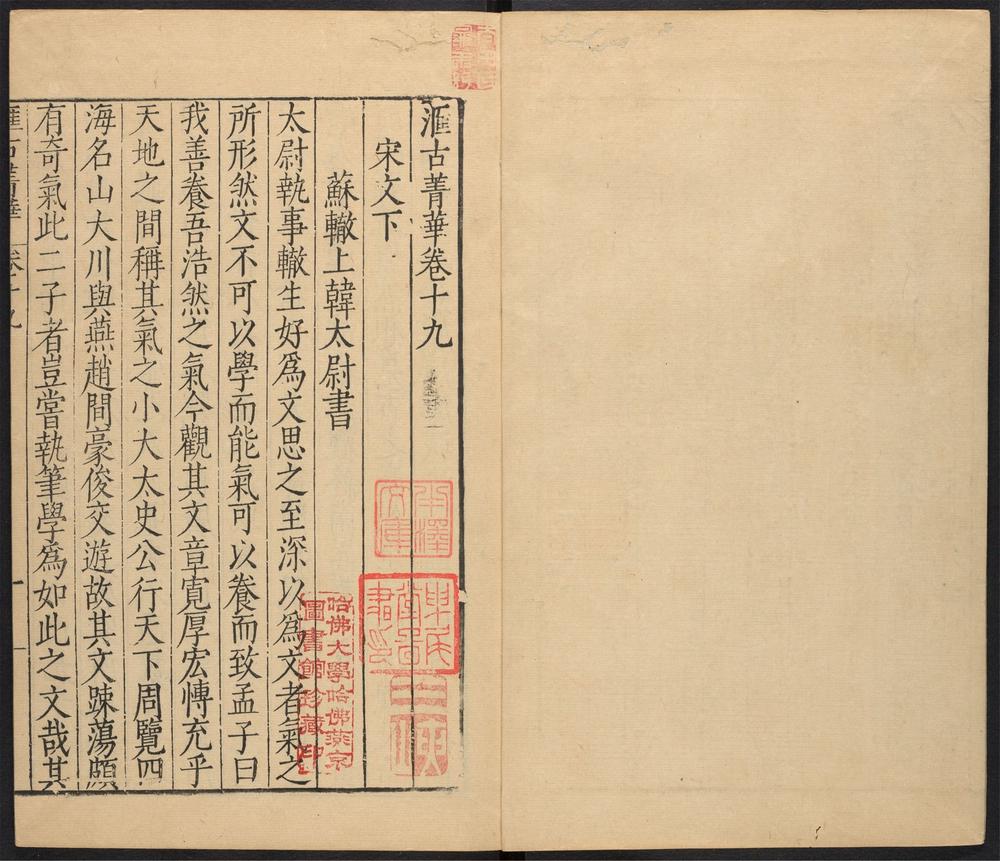 滙古菁華卷十九
宋文下
蘇轍上韓太尉書
太尉執事轍生好爲文思之至深以爲文者氣之
所形然文不可以學而能氣可以養而致孟子曰
我善養吾浩然之氣今觀其文章寬厚宏慱充乎
天地之間稱其氣之小大太史公行天下周覽四
海名山大川與燕趙間豪俊交遊故其文踈蕩頗
有奇氣此二子者豈嘗執筆學爲如此之文哉其
滙古菁華
卷十九
一
哈佛大學哈佛燕京
圖書館珍藏印